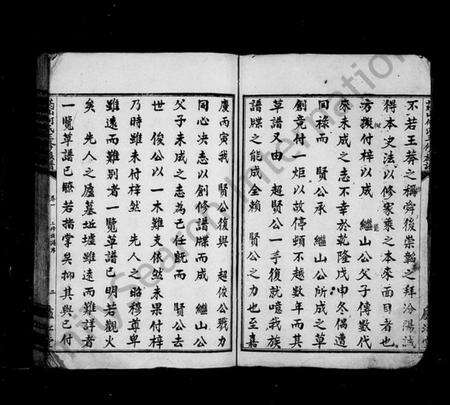 不若王蔡之稱舜後崇韜之拜汾陽誠
得本史法以修家乘之本來面目者也
方擬付梓以成 繼山公父子傳數代
來未成之志不幸於乾隆戊申冬偶遭
回祿而 賢公承 繼山公所成之草
創竟付一炬以故停頓不越數年而其
草譜又由 超賢公一手復就噫我族
譜牒之能成全賴 賢公之力也至嘉
慶丙寅我 賢公復與 超俊公戮力
同心決志以創修譜牒而成 繼山公
父子未成之志為己任既而 賢公去
世 俊公以一木難支依然未果付梓
乃時雖未付梓然 先人之昭穆尊卑
雖遠而難別者一覽草譜已明若觀火
矣 先人之廬墓址墟雖遠而難詳者
一覽草譜已瞭若指掌矣抑其與已付
卷一
二